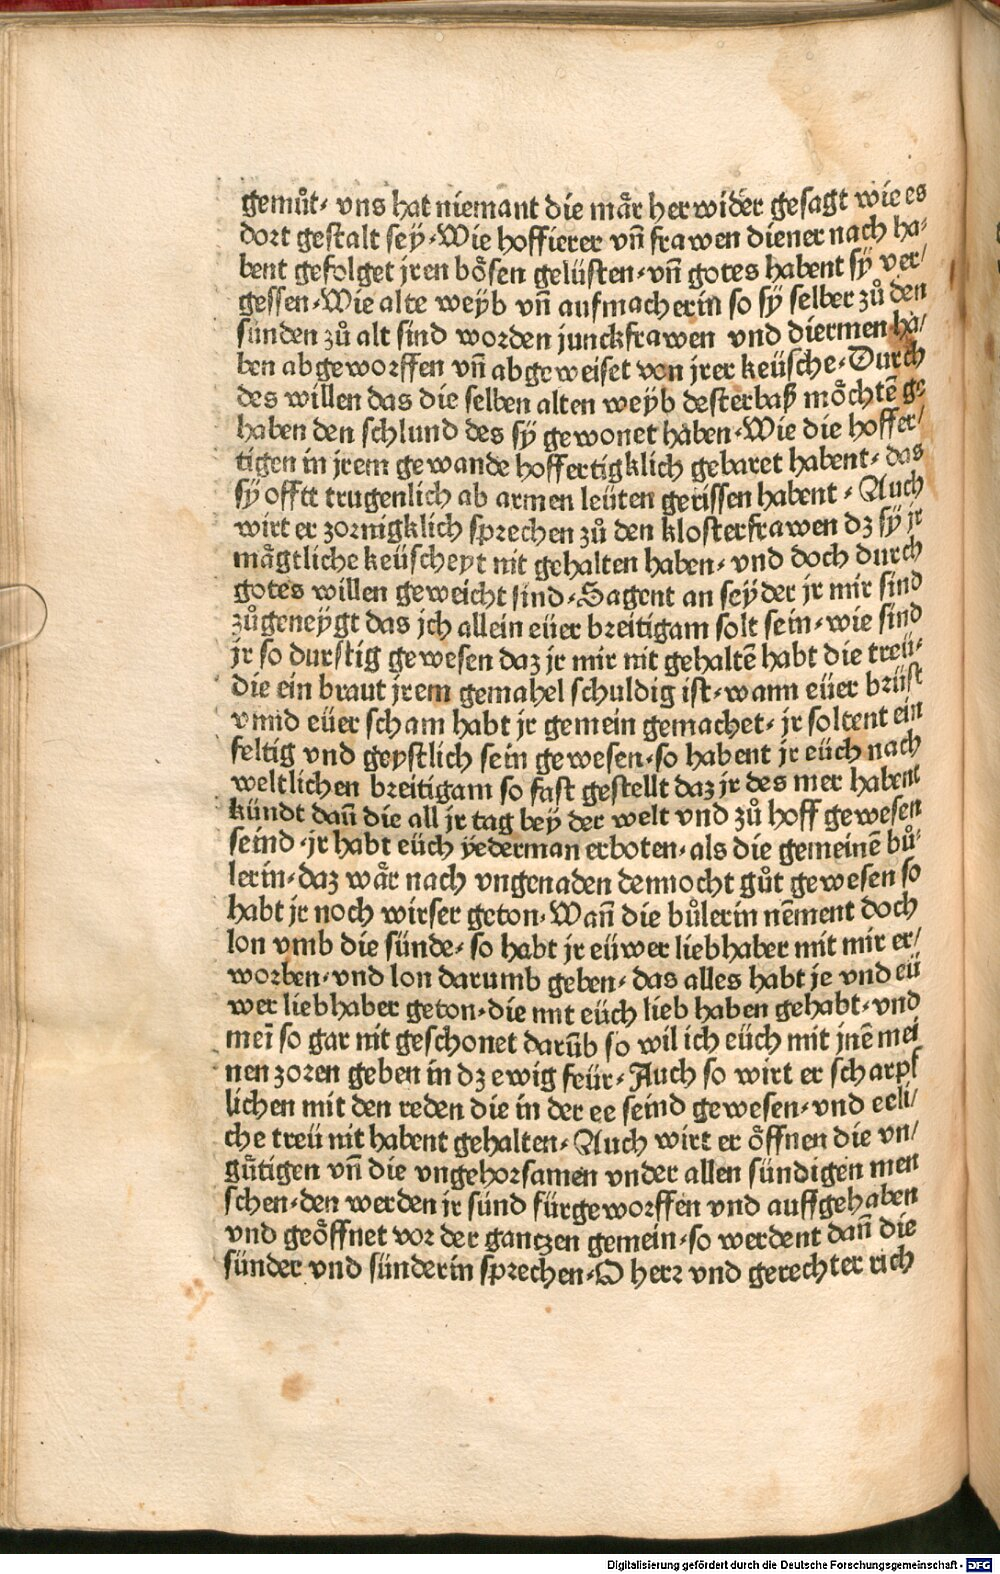 gemuͦt· vns hat niemant die maͤr her wider gesagt wie es
dort gestalt sey·Wie hoffierer vñ frawen diener nach ha⸗
bent gefolget jren boͤsen gelüsten·vñ gotes habent sÿ ver/
gessen·Wie alte weÿb vñ aufmacherin so sÿ selber zuͦ den
sünden zuͦ alt sind worden junckfrawen vnd diermen ha/
ben abgeworffen vñ abgeweiset von jrer keüsche·Durch
des willen das die selben alten weÿb desterbaß moͤchtē ge⸗
haben den schlund des sÿ gewonet haben·Wie die hoffer/
tigen in jrem gewande hoffertigklich gebaret habent· das
sÿ offtt trugenlich ab armen leüten gerissen habent · Auch
wirt er zornigklich sprechen zuͦ den klosterfrawen dz sÿ jr
maͤgtliche keüscheyt nit gehalten haben· vnd doch durch
gotes willen geweicht sind·Sagent an seÿder jr mir sind
zuͦgeneÿgt das jch allein eüer breitigam solt sein·wie sind
jr so durstig gewesen daz jr mir nit gehaltē habt die treü·
die ein braut jrem gemahel schuldig ist·wann eüer brüst
vnnd eüer scham habt jr gemein gemachet· jr soltent ein
feltig vnd geystlich sein gewesen·so habent jr eüch nach
weltlichen breitigam so fast gestellt daz jr des mer habent
kündt dañ die all jr tag bey der welt vnd zuͦ hoff gewesen
seind·jr habt eüch ÿederman erboten·als die gemeinē buͦ⸗
lerin·daz waͤr nach vngenaden dennocht guͦt gewesen so
habt jr noch wirser geton·Wañ die buͦlerin nēment doch
lon vmb die sünde· so habt jr eüwer liebhaber mit mir er/
worben·vnd lon darumb geben· das alles habt je vnd eü
wer liebhaber geton·die mit eüch lieb haben gehabt·vnd
meī so gar nit geschonet darūb so wil ich eüch mit jnē mei
nen zoren geben in dz ewig feür· Auch so wirt er scharpf
lichen mit den reden die in der ee seind gewesen·vnd eeli/
che treü nit habent gehalten· Auch wirt er oͤffnen die vn/
guͤtigen vñ die vngehorsamen vnder allen sündigen men
schen·den werden jr sünd fürgeworffen vnd auffgehaben
vnd geoͤffnet vor der gantzen gemein·so werdent dañ die
sünder vnd sünderin sprechen·O herr vnd gerechter rich
Digitalisierung gefördert durch die Deutsche Forschungsgemeinschaft - DFG